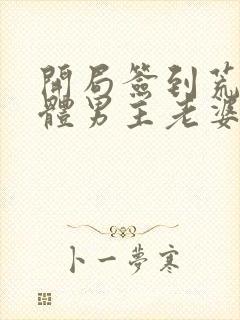 開局簽到荒
體男主老婆
卜一夢寒